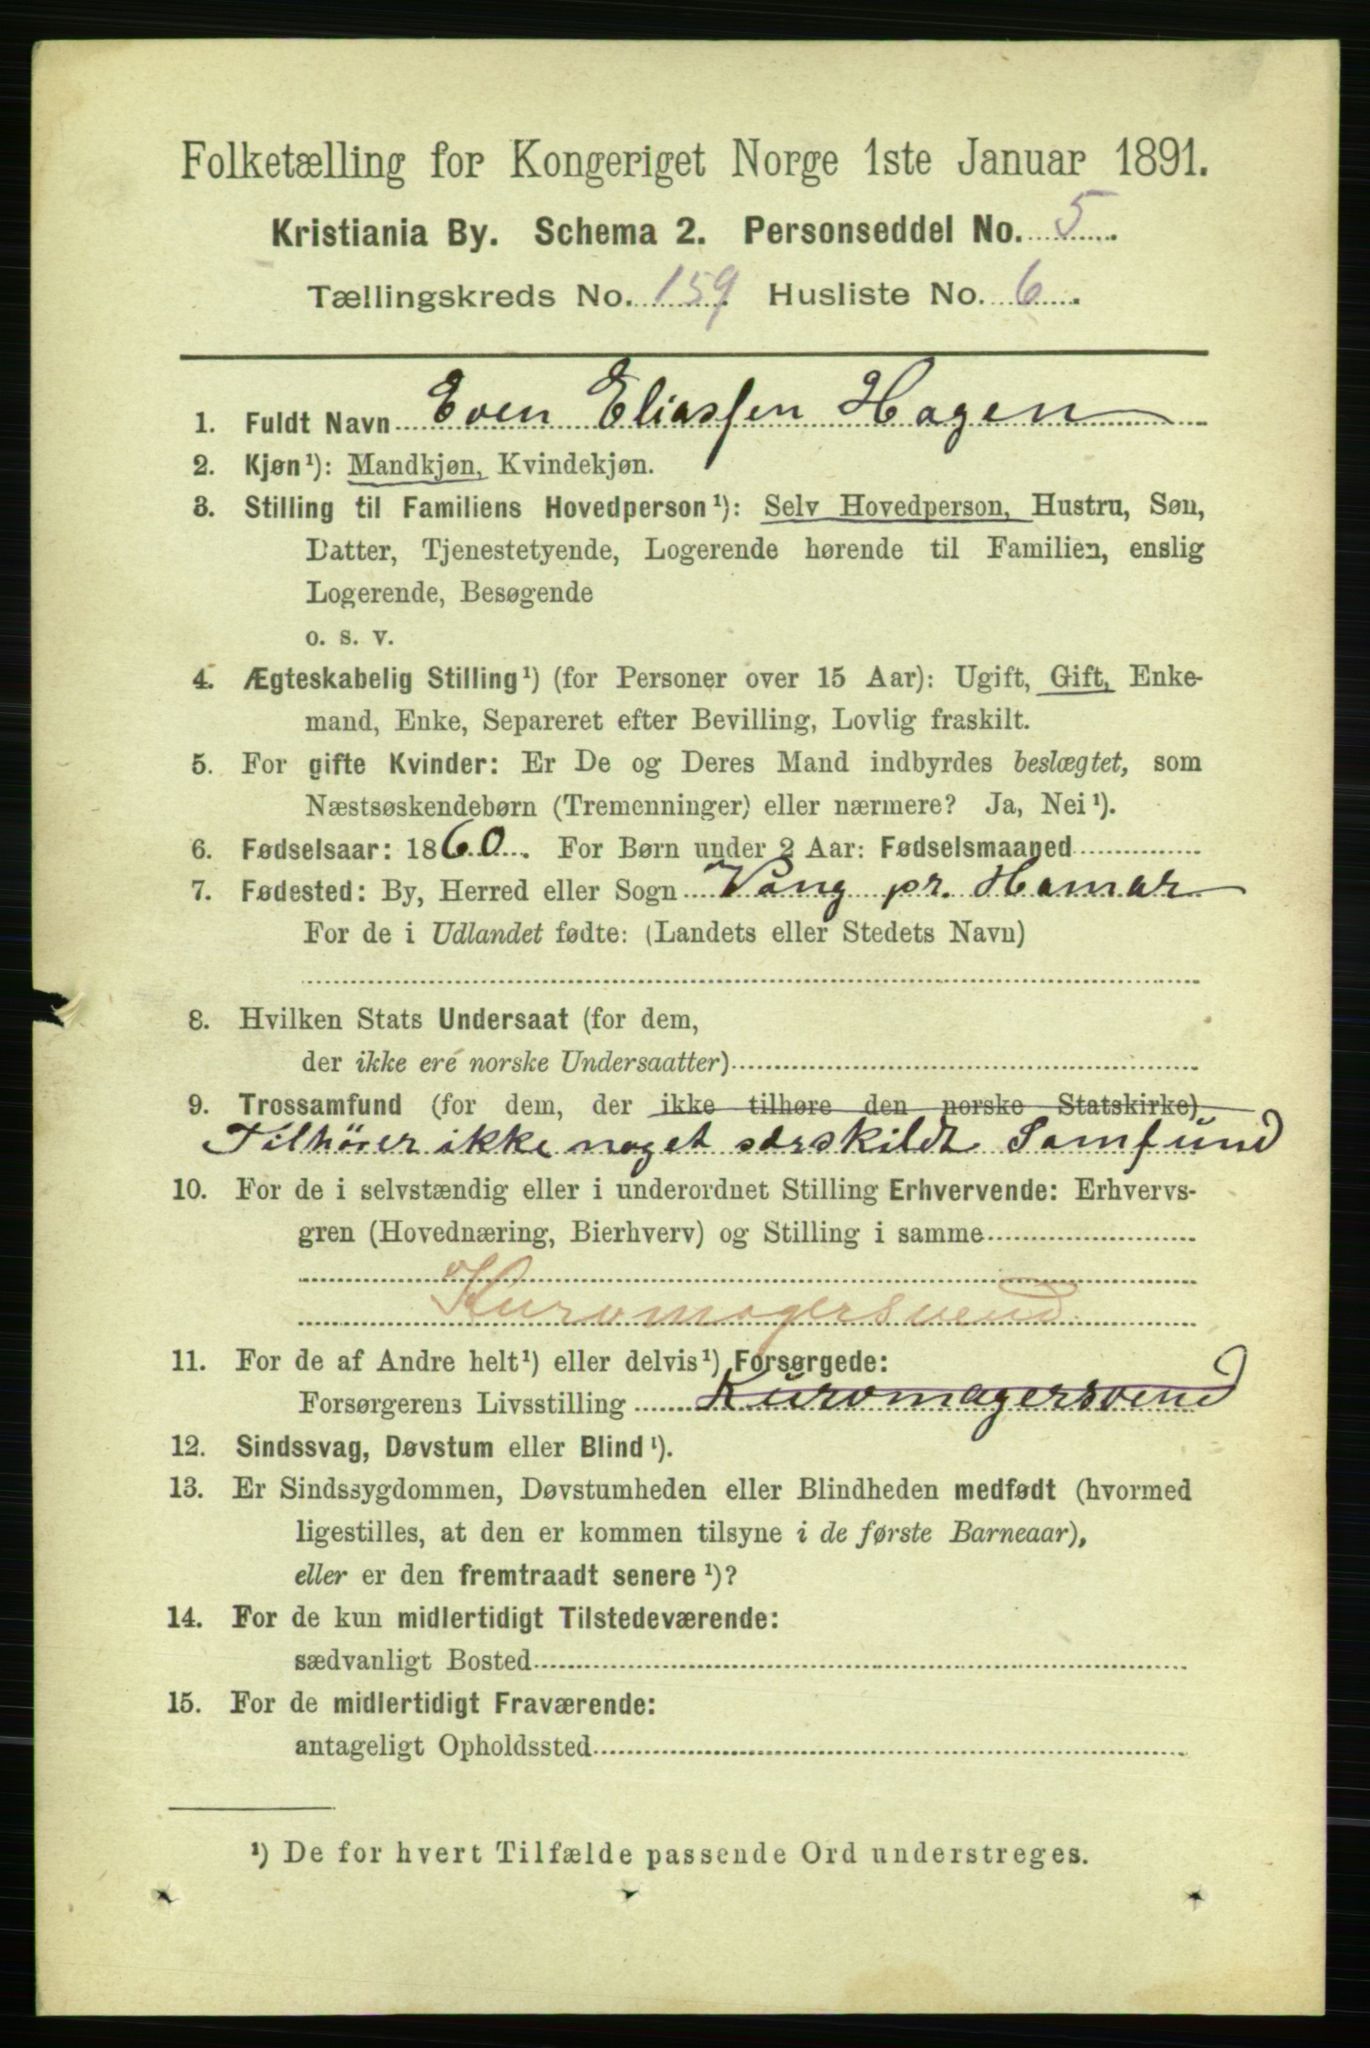 Folketælling for Kongeriget Norge 1ste Januar 1891.
Kristiania By. Schema 2. Personseddel No. 5.
Tællingskreds No. 159. Husliste No. 6.
1. Fuldt Navn Even Eliassen Hagen
2. Kjøn¹): Mandkjøn, Kvindekjøn.
3. Stilling til Familiens Hovedperson¹): Selv Hovedperson, Hustru, Søn,
Datter, Tjenestetyende, Logerende hørende til Familien, enslig
Logerende, Besøgende
o. s. v.
4. Ægteskabelig Stilling¹) (for Personer over 15 Aar): Ugift, Gift, Enke-
mand, Enke, Separeret efter Bevilling, Lovlig fraskilt.
5. For gifte Kvinder: Er De og Deres Mand indbyrdes beslægtet, som
Næstsøskendebørn (Tremenninger) eller nærmere? Ja, Nei¹).
6. Fødselsaar: 1860. For Børn under 2 Aar: Fødselsmaaned
7. Fødested: By, Herred eller Sogn Vang pr. Hamar
For de i Udlandet fødte: (Landets eller Stedets Navn)
8. Hvilken Stats Undersaat (for dem,
der ikke ere norske Undersaatter)
9. Trossamfund (for dem, der ikke tilhøre den norske Statskirke)
Tilhører ikke noget særskildt Samfund
10. For de i selvstændig eller i underordnet Stilling Erhvervende: Erhvervs-
gren (Hovednæring, Bierhverv) og Stilling i samme
Kurvmagersvend
11. For de af Andre helt¹) eller delvis¹) Forsørgede:
Forsørgerens Livsstilling Kurvmagersvend
12. Sindssvag, Døvstum eller Blind¹).
13. Er Sindssygdommen, Døvstumheden eller Blindheden medfødt (hvormed
ligestilles, at den er kommen tilsyne i de første Barneaar),
eller er den fremtraadt senere¹)?
14. For de kun midlertidigt Tilstedeværende:
sædvanligt Bosted
15. For de midlertidigt Fraværende:
antageligt Opholdssted
¹) De for hvert Tilfælde passende Ord understreges.